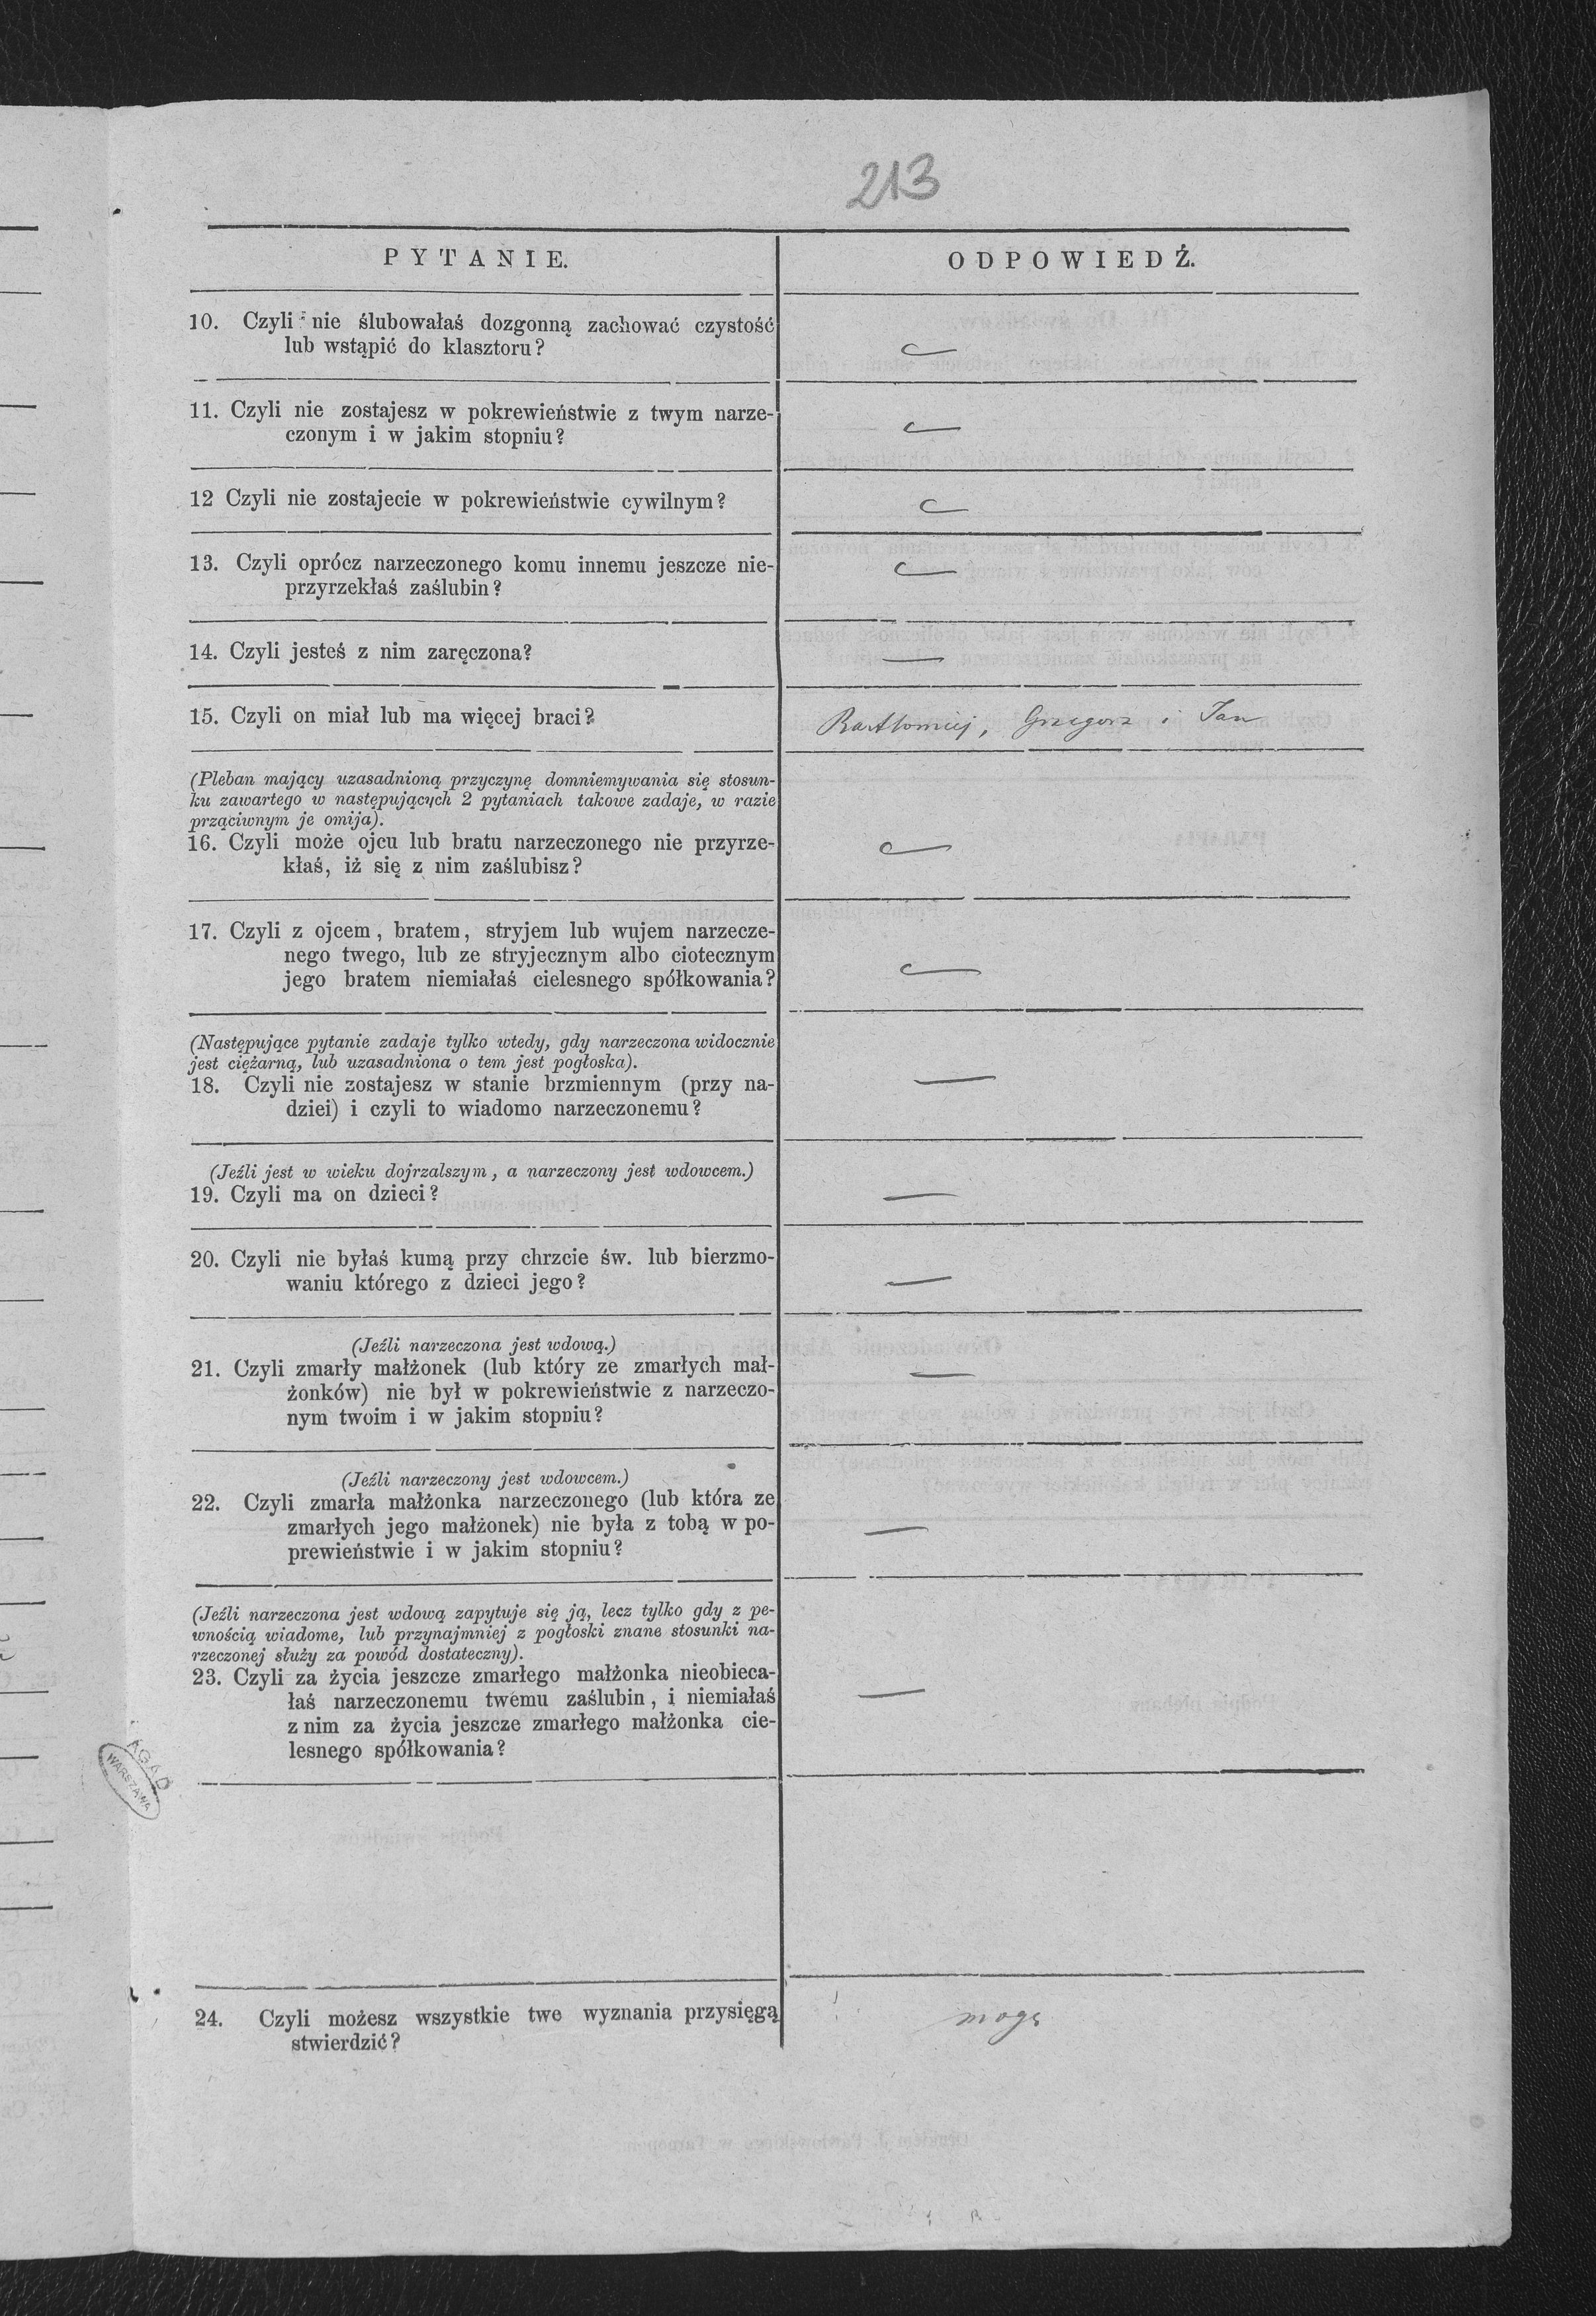 213
PYTANIE.
ODPOWIEDŹ.
10. Czyli nie ślubowałaś dozgonną zachować czystość
lub wstąpić do klasztoru?
11. Czyli nie zostajesz w pokrewieństwie z twym narze-
czonym i w jakim stopniu?
12 Czyli nie zostajecie w pokrewieństwie cywilnym?
13. Czyli oprócz narzeczonego komu innemu jeszcze nie-
przyrzekłaś zaślubin?
14. Czyli jesteś z nim zaręczona?
—
15. Czyli on miał lub ma więcej braci?
Bartłomiej, Grzegorz i Jan
(Pleban mający uzasadnioną przyczynę domniemywania się stosun-
ku zawartego w następujących 2 pytaniach takowe zadaje, w razie
prząciwnym je omija).
16. Czyli może ojcu lub bratu narzeczonego nie przyrze-
kłaś, iż się z nim zaślubisz?
17. Czyli z ojcem, bratem, stryjem lub wujem narzecze-
nego twego, lub ze stryjecznym albo ciotecznym
jego bratem niemiałaś cielesnego spółkowania?
(Następujące pytanie zadaje tylko wtedy, gdy narzeczona widocznie
jest ciężarną, lub uzasadniona o tem jest pogłoska).
18. Czyli nie zostajesz w stanie brzmiennym (przy na-
dziei) i czyli to wiadomo narzeczonemu?
—
(Jeźli jest w wieku dojrzalszym, a narzeczony jest wdowcem.)
19. Czyli ma on dzieci?
—
20. Czyli nie byłaś kumą przy chrzcie św. lub bierzmo-
waniu którego z dzieci jego?
—
(Jeźli narzeczona jest wdową.)
21. Czyli zmarły małżonek (lub który ze zmarłych mał-
żonków) nie był w pokrewieństwie z narzeczo-
nym twoim i w jakim stopniu?
—
(Jeźli narzeczony jest wdowcem.)
22. Czyli zmarła małżonka narzeczonego (lub która ze
zmarłych jego małżonek) nie była z tobą w po-
prewieństwie i w jakim stopniu?
—
(Jeźli narzeczona jest wdową zapytuje się ją, lecz tylko gdy z pe-
wnością wiadome, lub przynajmniej z pogłoski znane stosunki na-
rzeczonej służy za powód dostateczny).
23. Czyli za życia jeszcze zmarłego małżonka nieobieca-
łaś narzeczonemu twemu zaślubin, i niemiałaś
z nim za życia jeszcze zmarłego małżonka cie-
lesnego spółkowania?
—
AGAD
WARSZAWA
24. Czyli możesz wszystkie twe wyznania przysięgą
stwierdzić?
mogę